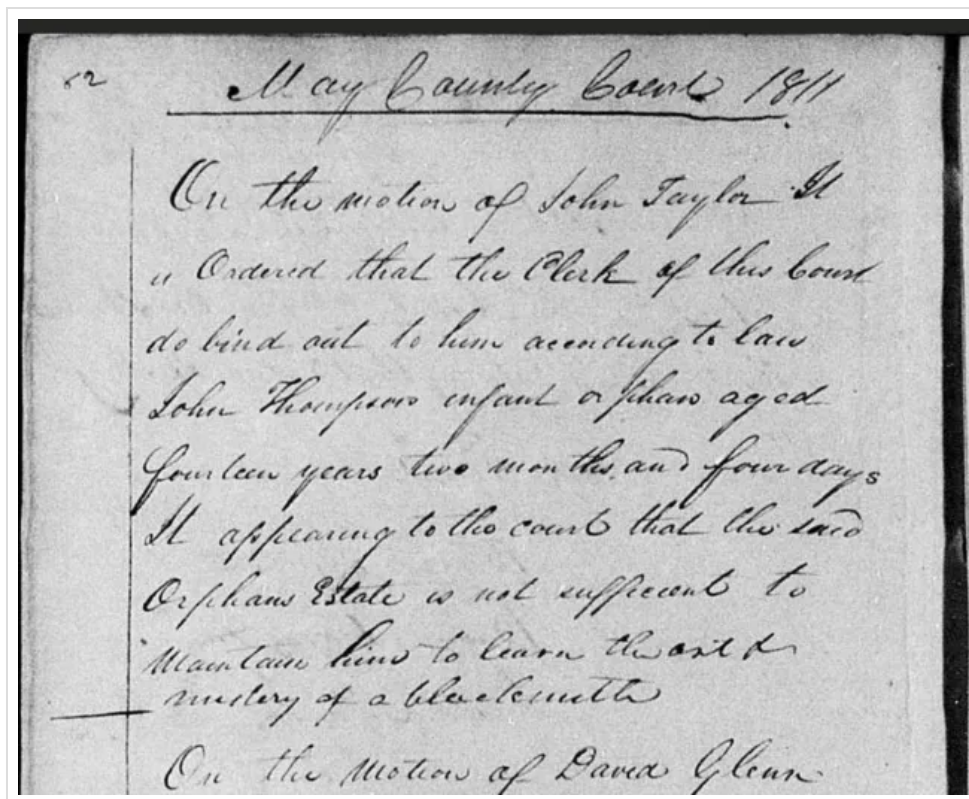 52
May County Court 1811
On the motion of John Taylor It
is Ordered that the Clerk of this Court
do bind out to him according to law
John Thompson infant orphan aged
fourteen years two months and four days
It appearing to the court that the said
Orphans Estate is not sufficient to
Maintain him to learn the art &
mistery of a blacksmith
On the Motion of David Glenn